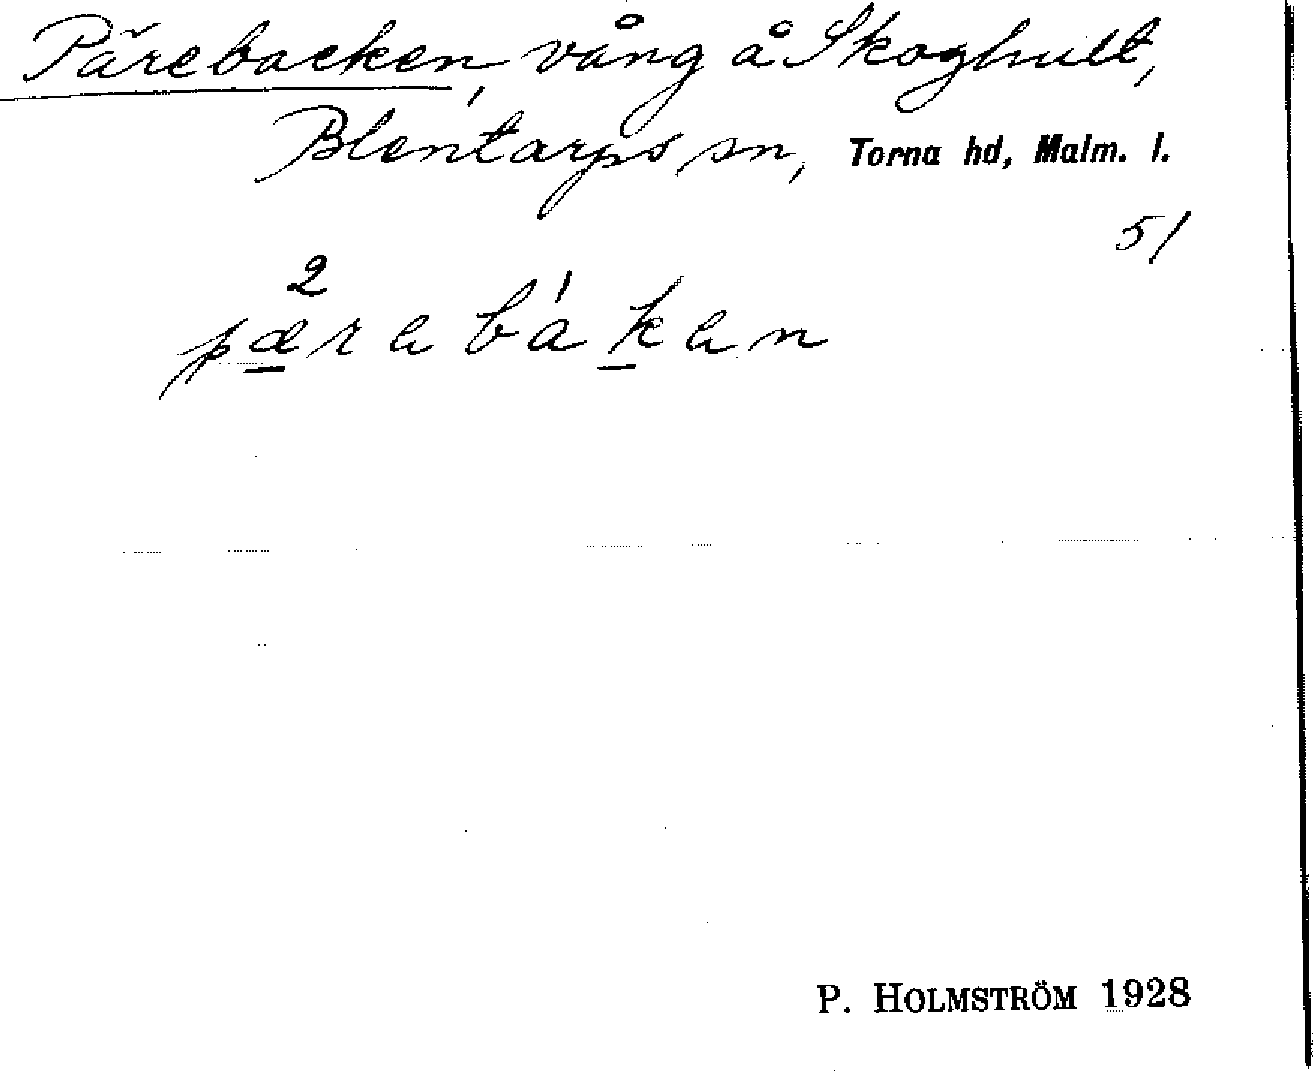 Pärebacken, vång å Skoghult,
Blentarps sn, Torna hd, Malm. l.
51
2
pærabákan
P. HOLMSTRÖM 1928